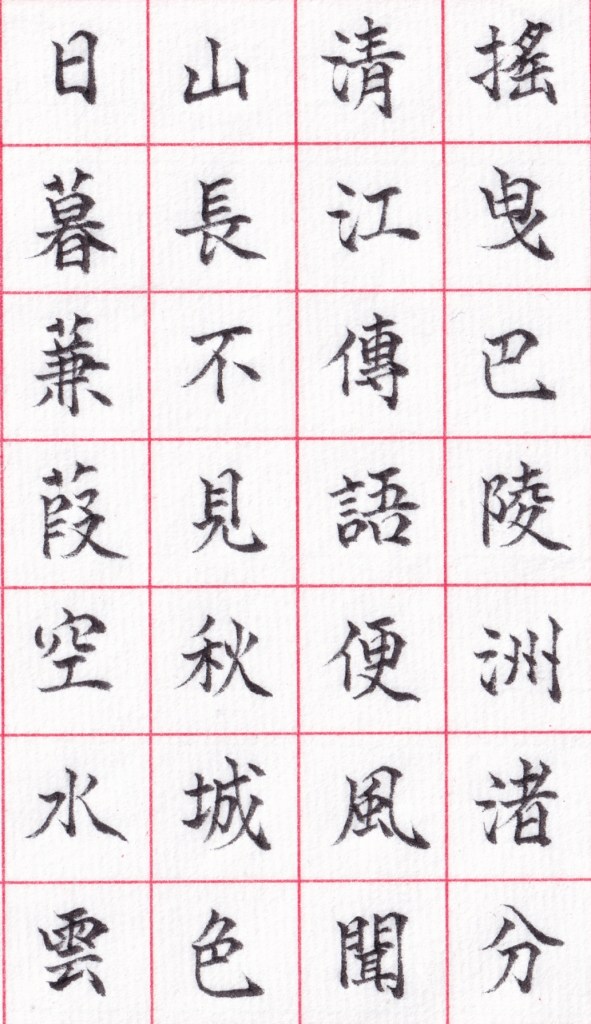 搖曳巴陵洲渚分
清江傳語便風聞
山長不見秋城色
日暮蒹葭空水雲